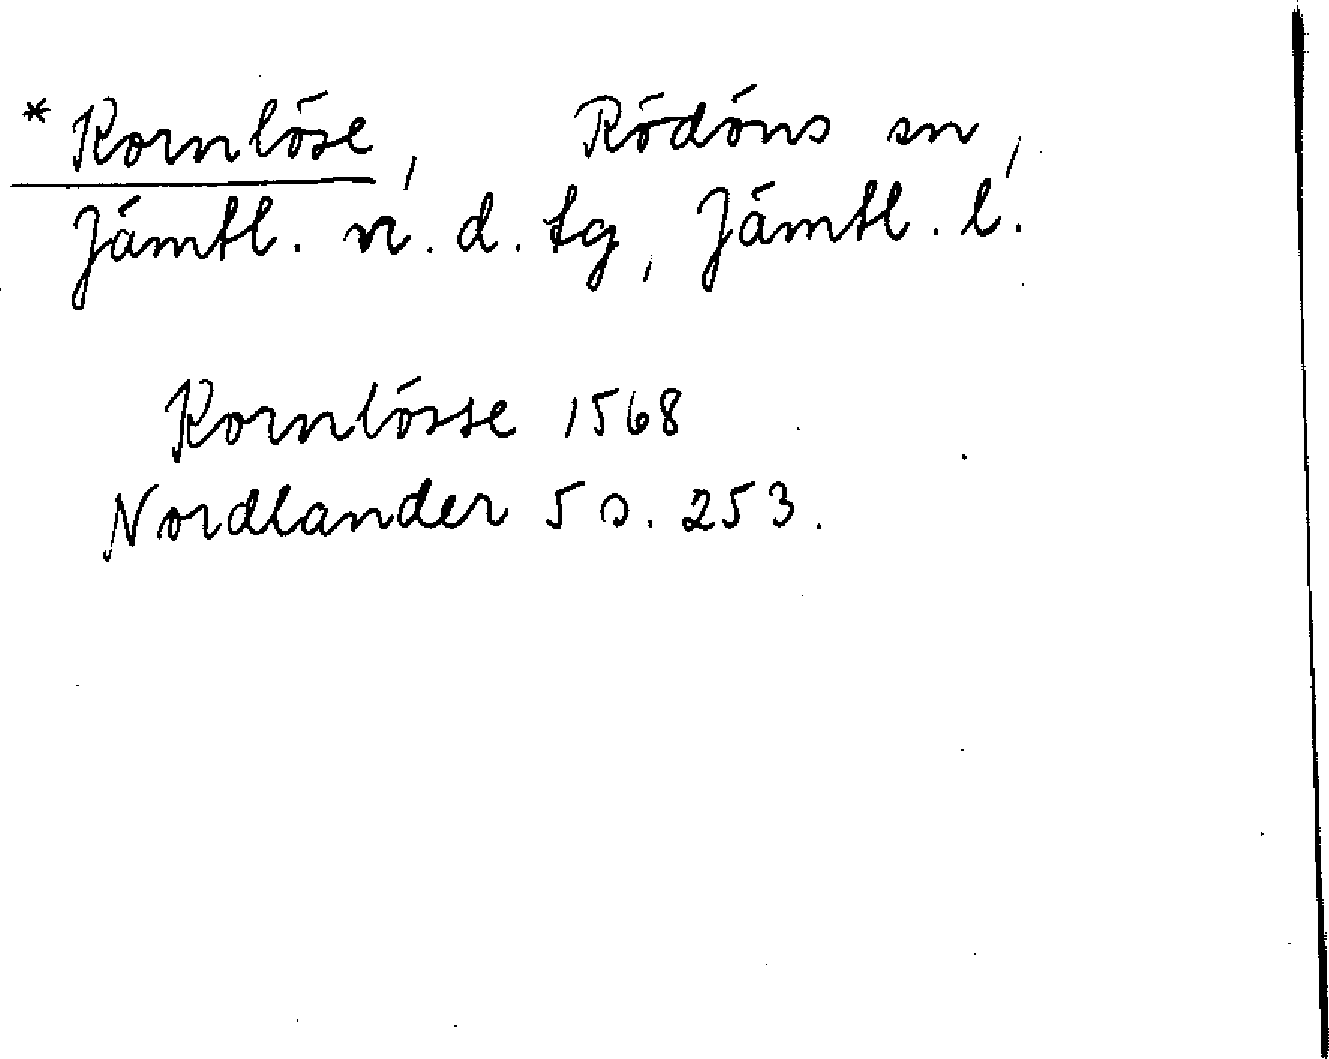 *Kornlöse, Rödöns sn,
Jämtl. v. d. tg, Jämtl. l.
Kornlösse 1568
Nordlander 5 s. 253.